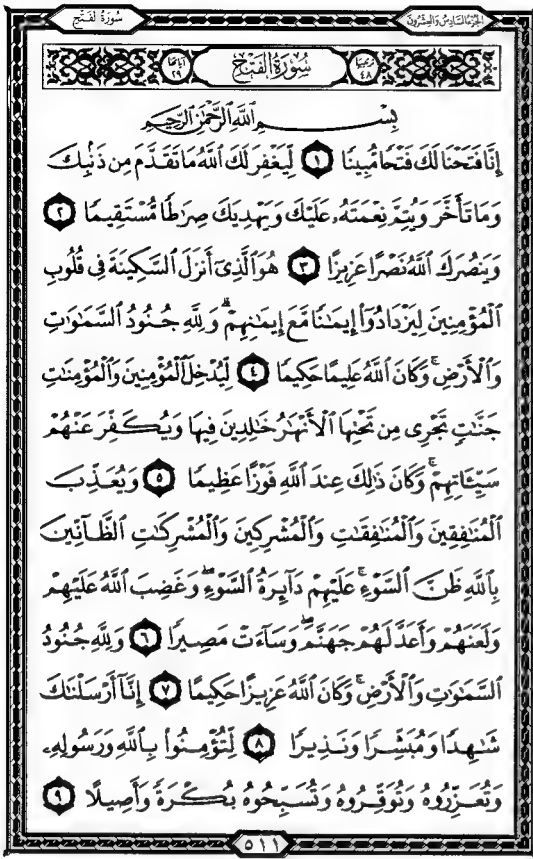 الجزء السادس والعشرون
سورة الفتح
ترتيبها ٤٨
سورة الفتح
آياتها ٢٩
بِسْمِ اللَّهِ الرَّحْمَٰنِ الرَّحِيمِ
إِنَّا فَتَحْنَا لَكَ فَتْحًا مُّبِينًا ١ لِّيَغْفِرَ لَكَ اللَّهُ مَا تَقَدَّمَ مِن ذَنۢبِكَ
وَمَا تَأَخَّرَ وَيُتِمَّ نِعْمَتَهُۥ عَلَيْكَ وَيَهْدِيَكَ صِرَٰطًا مُّسْتَقِيمًا ٢
وَيَنصُرَكَ اللَّهُ نَصْرًا عَزِيزًا ٣ هُوَ ٱلَّذِىٓ أَنزَلَ ٱلسَّكِينَةَ فِى قُلُوبِ
ٱلْمُؤْمِنِينَ لِيَزْدَادُوٓا۟ إِيمَٰنًا مَّعَ إِيمَٰنِهِمْ ۗ وَلِلَّهِ جُنُودُ ٱلسَّمَٰوَٰتِ
وَٱلْأَرْضِ ۚ وَكَانَ ٱللَّهُ عَلِيمًا حَكِيمًا ٤ لِّيُدْخِلَ ٱلْمُؤْمِنِينَ وَٱلْمُؤْمِنَٰتِ
جَنَّٰتٍ تَجْرِى مِن تَحْتِهَا ٱلْأَنْهَٰرُ خَٰلِدِينَ فِيهَا وَيُكَفِّرَ عَنْهُمْ
سَيِّـَٔاتِهِمْ ۚ وَكَانَ ذَٰلِكَ عِندَ ٱللَّهِ فَوْزًا عَظِيمًا ٥ وَيُعَذِّبَ
ٱلْمُنَٰفِقِينَ وَٱلْمُنَٰفِقَٰتِ وَٱلْمُشْرِكِينَ وَٱلْمُشْرِكَٰتِ ٱلظَّآنِّينَ
بِٱللَّهِ ظَنَّ ٱلسَّوْءِ ۚ عَلَيْهِمْ دَآئِرَةُ ٱلسَّوْءِ ۖ وَغَضِبَ ٱللَّهُ عَلَيْهِمْ
وَلَعَنَهُمْ وَأَعَدَّ لَهُمْ جَهَنَّمَ ۖ وَسَآءَتْ مَصِيرًا ٦ وَلِلَّهِ جُنُودُ
ٱلسَّمَٰوَٰتِ وَٱلْأَرْضِ ۚ وَكَانَ ٱللَّهُ عَزِيزًا حَكِيمًا ٧ إِنَّآ أَرْسَلْنَٰكَ
شَٰهِدًا وَمُبَشِّرًا وَنَذِيرًا ٨ لِّتُؤْمِنُوا۟ بِٱللَّهِ وَرَسُولِهِۦ
وَتُعَزِّرُوهُ وَتُوَقِّرُوهُ وَتُسَبِّحُوهُ بُكْرَةً وَأَصِيلًا ٩
٥١١